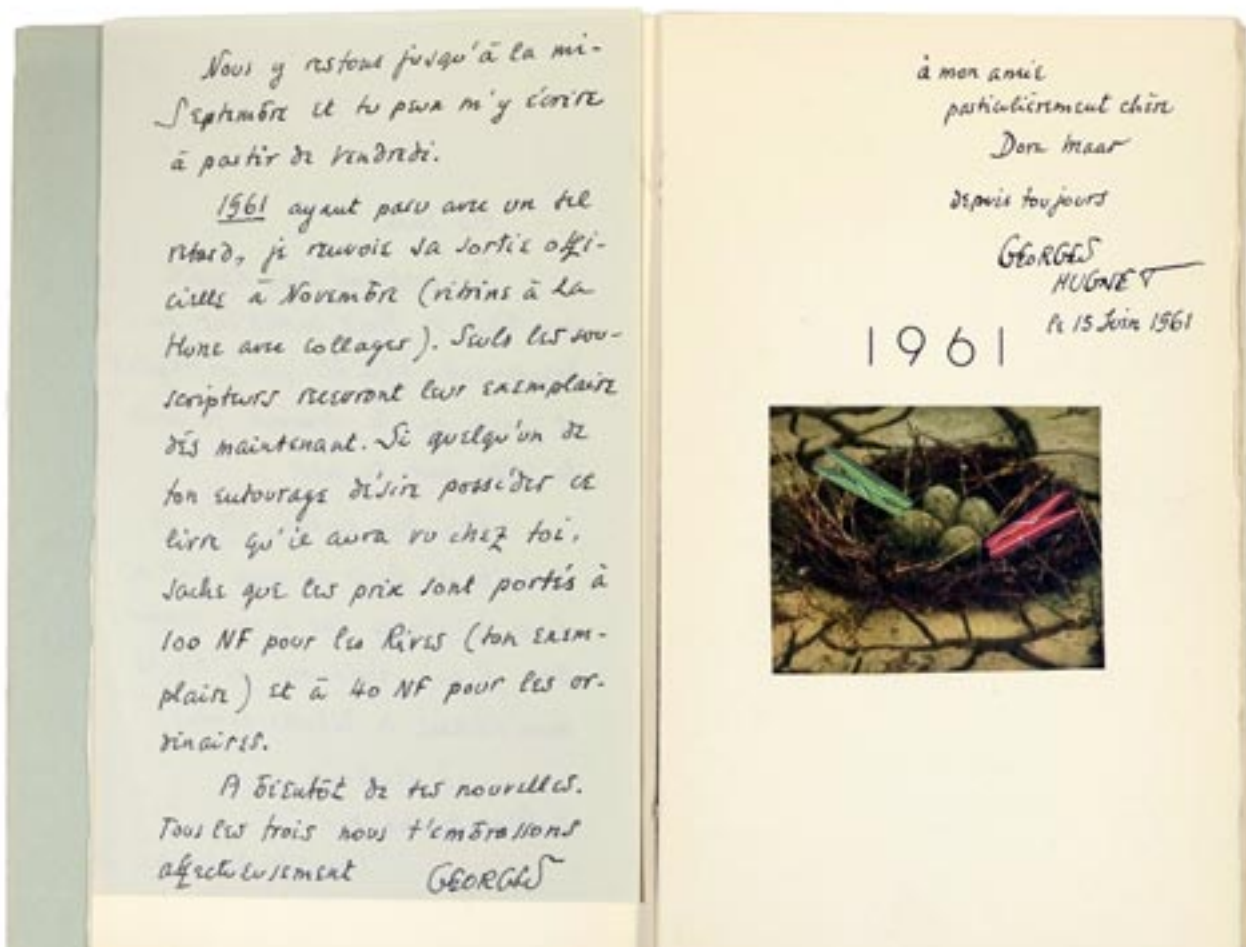 Nous y restons jusqu'à la mi-
Septembre et tu peux m'y écrire
à partir de Vendredi.
1961 ayant paru avec un tel
retard, je renvoie sa sortie offi-
cielle à Novembre (vitrine à La
Hune avec collages). Seuls les sou-
scripteurs recevront leur exemplaire
dès maintenant. Si quelqu'un de
ton entourage désire posséder ce
livre qu'il aura vu chez toi,
sache que les prix sont portés à
100 NF pour les Rives (ton exem-
plaire) et à 40 NF pour les or-
dinaires.
A bientôt de tes nouvelles.
Tous les trois nous t'embrassons
affectueusement GEORGES
à mon amie
particulièrement chère
Dora Maar
depuis toujours
GEORGES
HUGNET
le 15 Juin 1961
1961